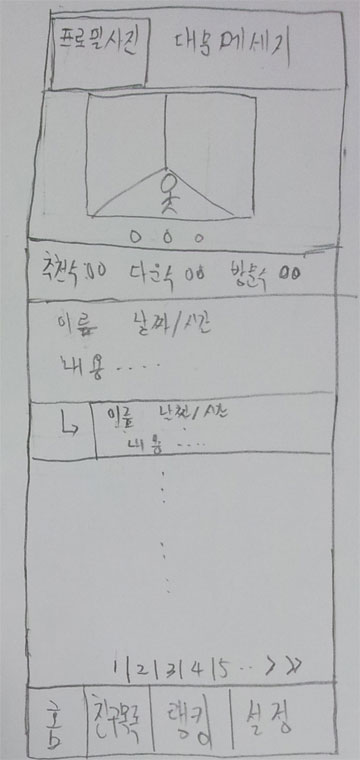 프로필사진 대문메세지
추천수 : 00 다운수 00 방문수 00
이름 날짜/시간
내용 ....
이름 날짜/시간
내용 ....
1/2/3/4/5 .. > >>
홈 친구목록 랭킹 설정